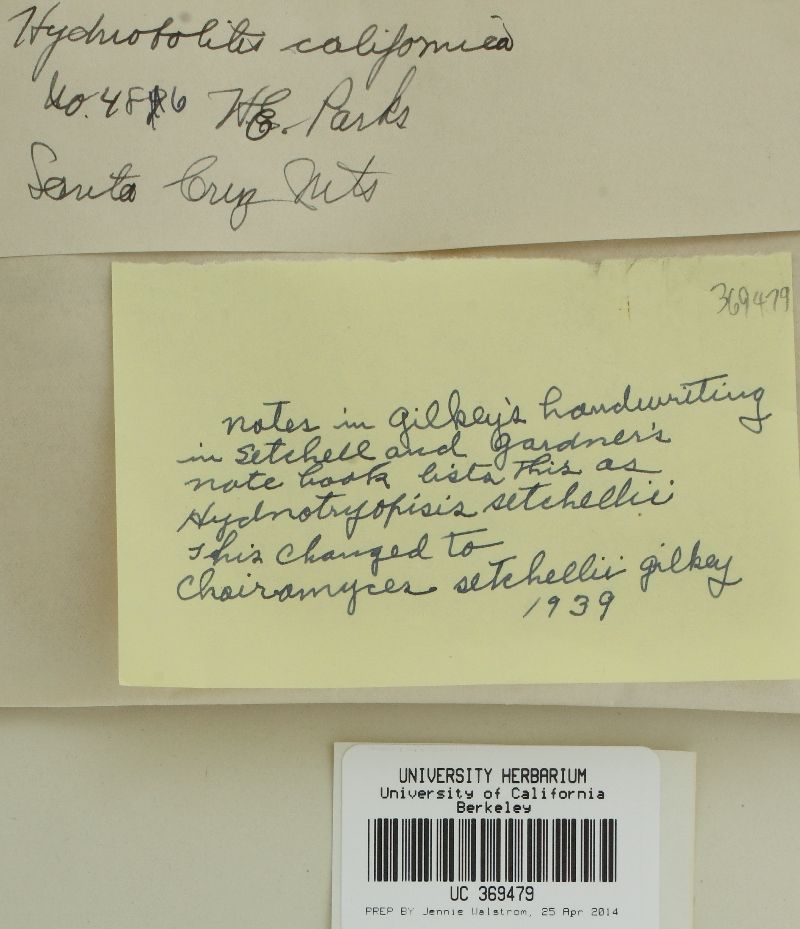 Hydnobolites californica
No. 4816 H.E. Parks
Santa Cruz Mts
369479
notes in Gilkey's handwriting
in Setchell and Gardner's
note book lists this as
Hydnotryopisis setchellii
This changed to
Choiromyces setchellii Gilkey
1939
UNIVERSITY HERBARIUM
University of California
Berkeley
UC 369479
PREP BY Jennie Walstrom, 25 Apr 2014